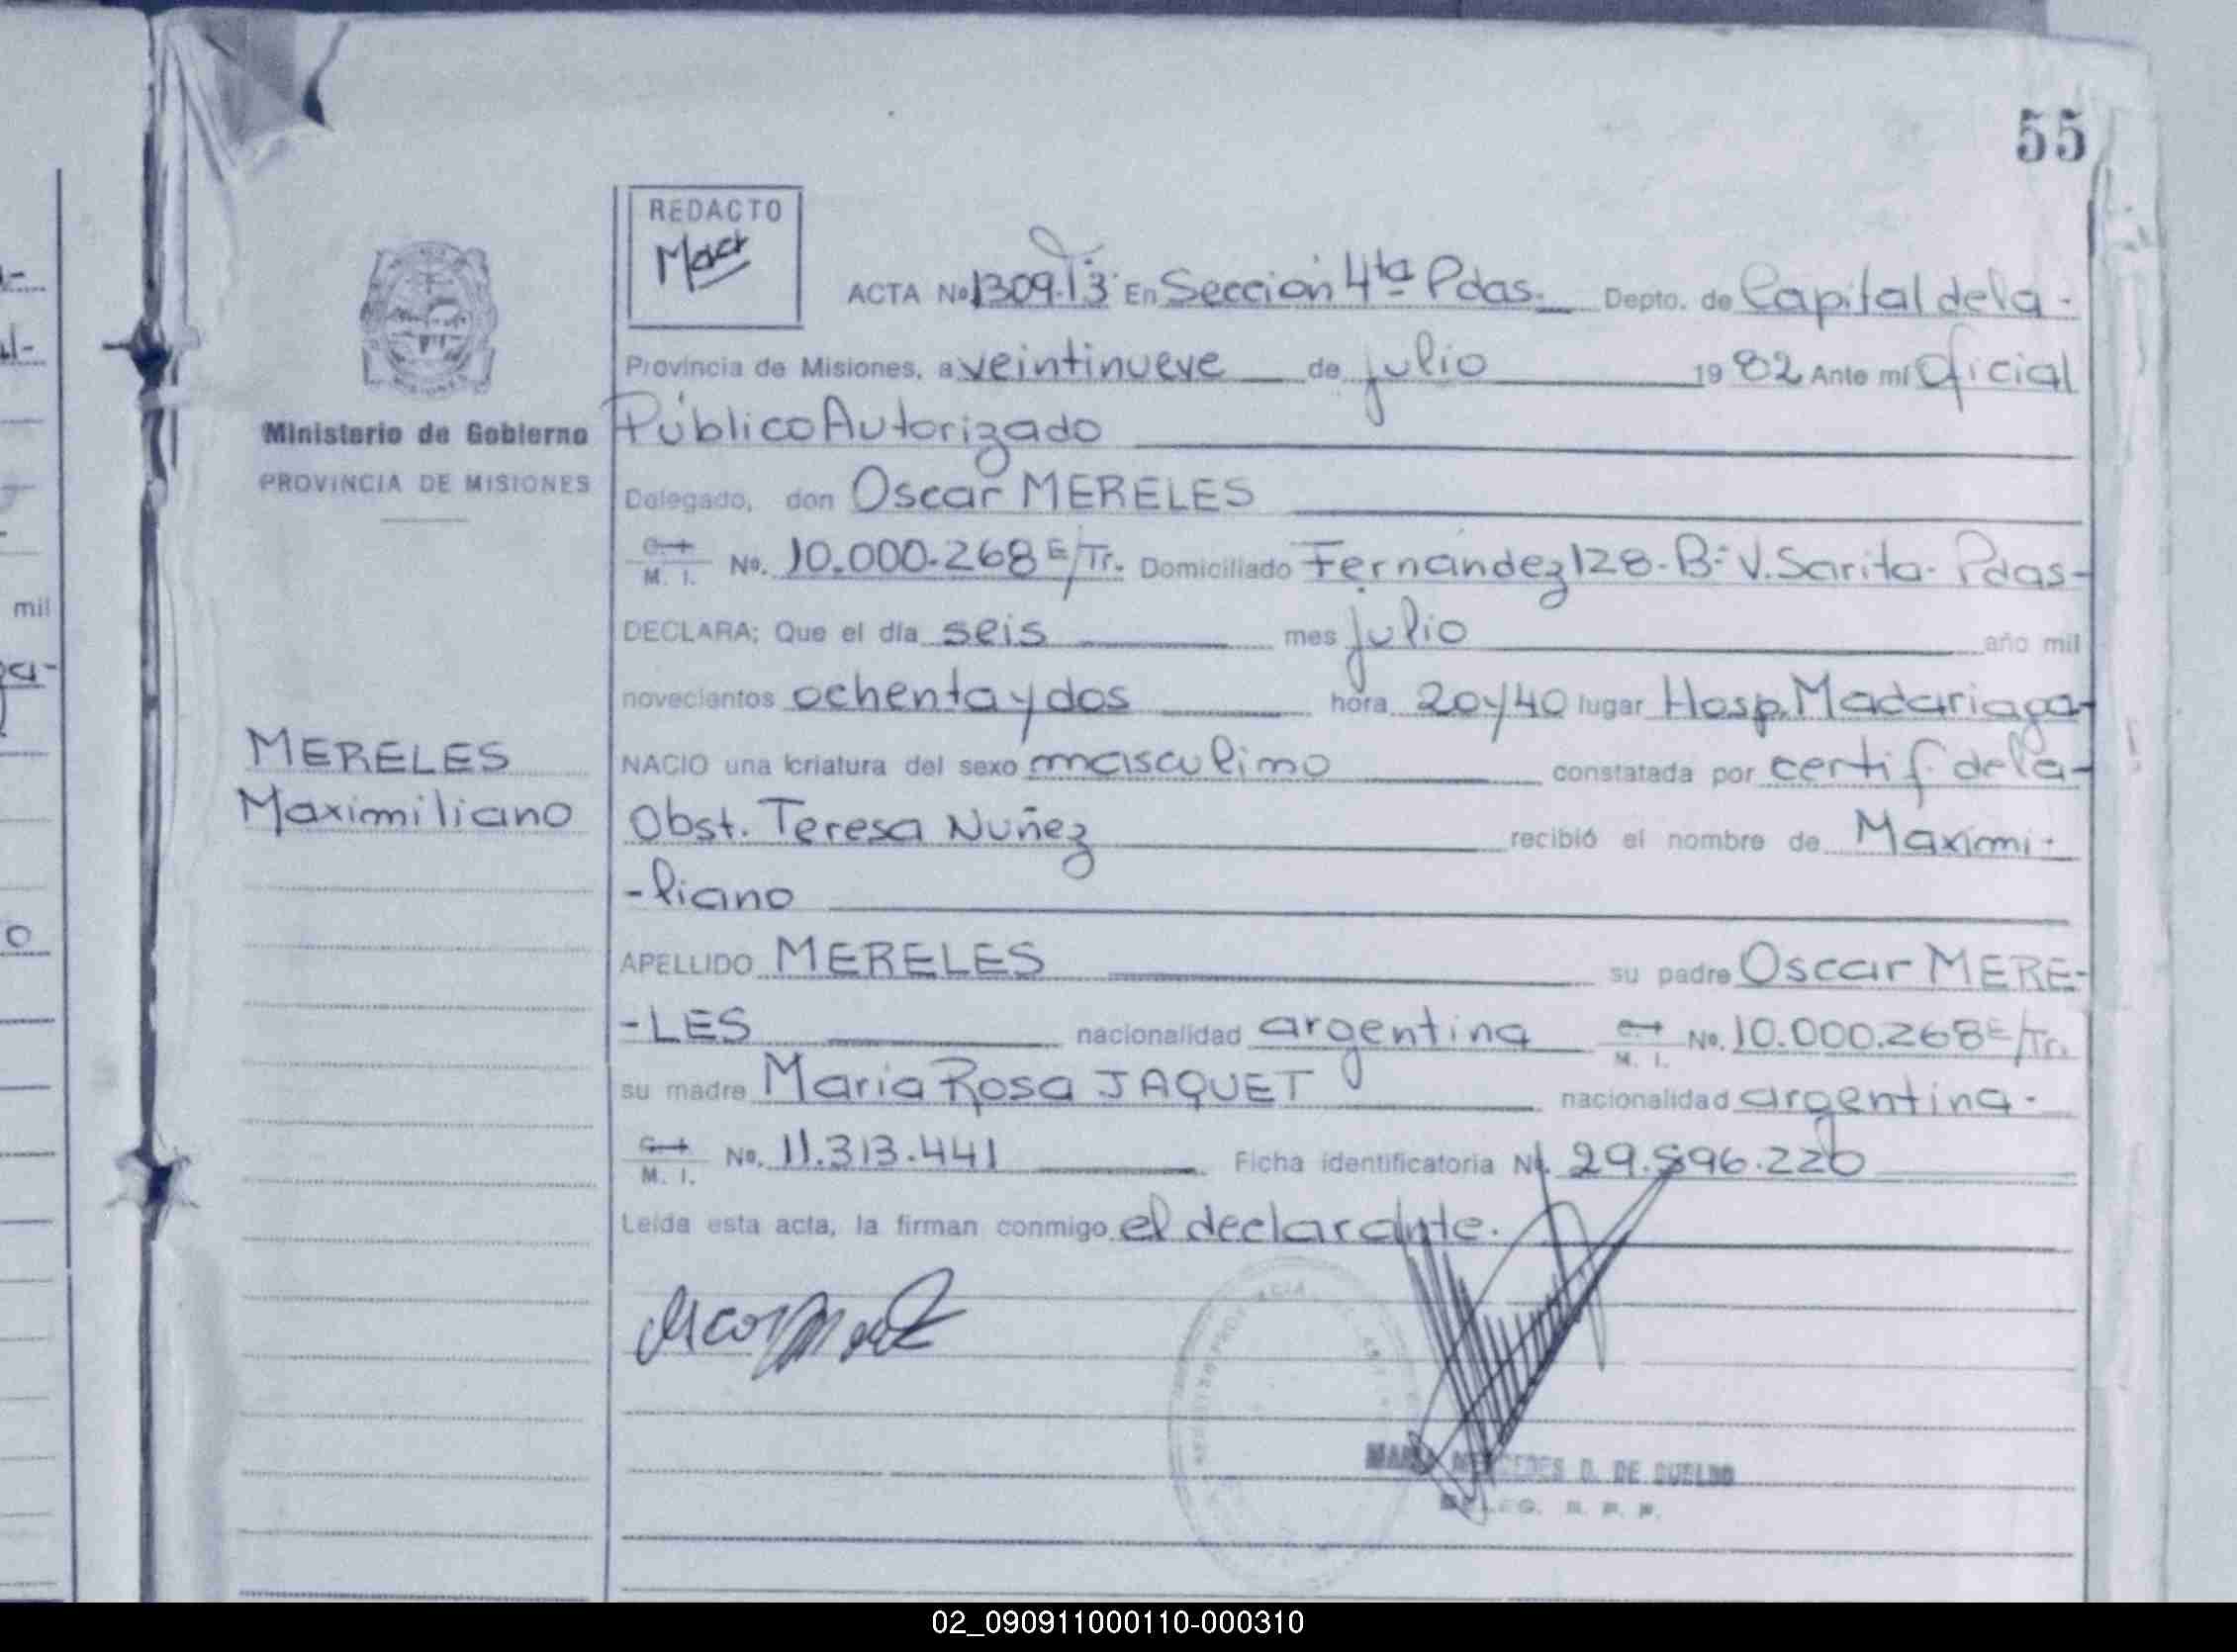 55
REDACTO
ACTA Nº 1309.T3. En Sección 4ta Pdas. Depto. de Capital de la -
Provincia de Misiones, a veintinueve de julio 1982 Ante mí Oficial
Público Autorizado
Delegado, don Oscar MERELES
M. I. No. 10.000.268 E/Tr. Domiciliado Fernández 128. Bº V. Sarita - Pdas -
DECLARA; Que el día seis mes julio año mil
novecientos ochenta y dos hora 20 y 40 lugar Hosp. Madariaga -
NACIO una criatura del sexo masculino constatada por certif de la -
Obst. Teresa Nuñez recibió el nombre de Maximi -
- liano
APELLIDO MERELES su padre Oscar MERE -
- LES nacionalidad argentina M. I. No. 10.000.268 E/Tr.
su madre Maria Rosa JAQUET nacionalidad argentina -
M. I. No. 11.313.441 Ficha identificatoria Nº. 29.596.226
Leída esta acta, la firman conmigo el declarante.
MERCEDES D. DE
DELEG. R. P. P.
Ministerio de Gobierno
PROVINCIA DE MISIONES
MERELES
Maximiliano
mil
02_090911000110-000310